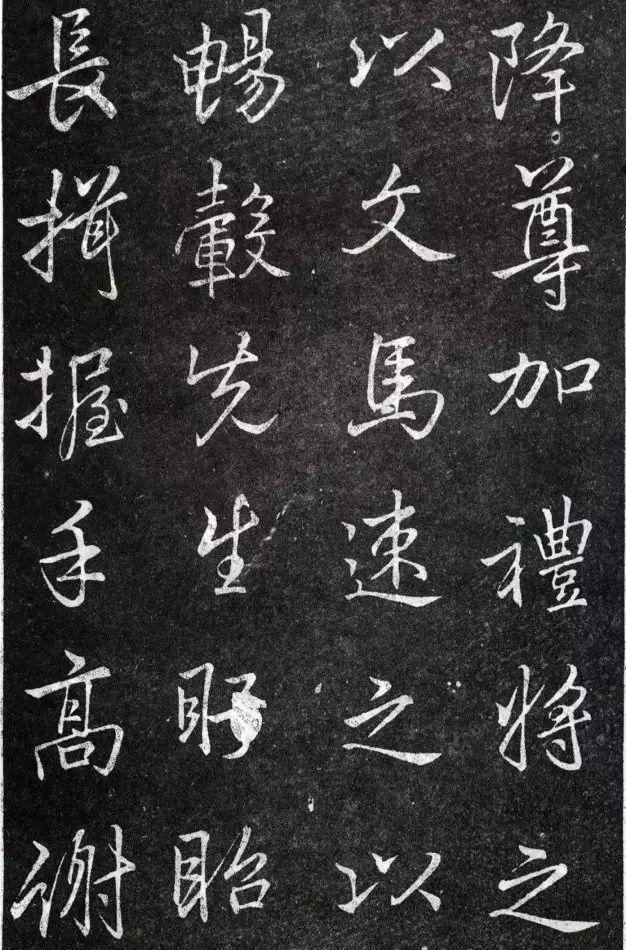 降尊加禮將之
以文馬速之以
暢轂先生盱眙
長揖握手高謝